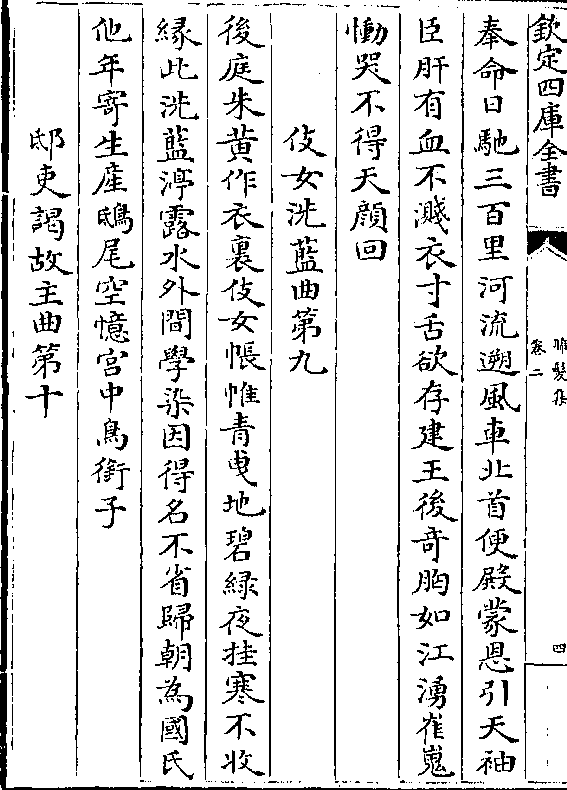 欽定四庫全書
晞髮集
卷二
四
奉命日馳三百里河流遡風車北首便殿蒙恩引天袖
臣肝有血不濺衣寸舌欲存建王後奇胸如江湧崔嵬
慟哭不得天顔回
伎女洗藍曲第九
後庭朱黄作衣裏伎女帳帷青曳地碧緑夜挂寒不收
緣此洗藍渟露水外間學染因得名不省歸朝為國氏
他年寄生産鴟尾空憶宫中鳥銜子
邸吏謁故主曲第十